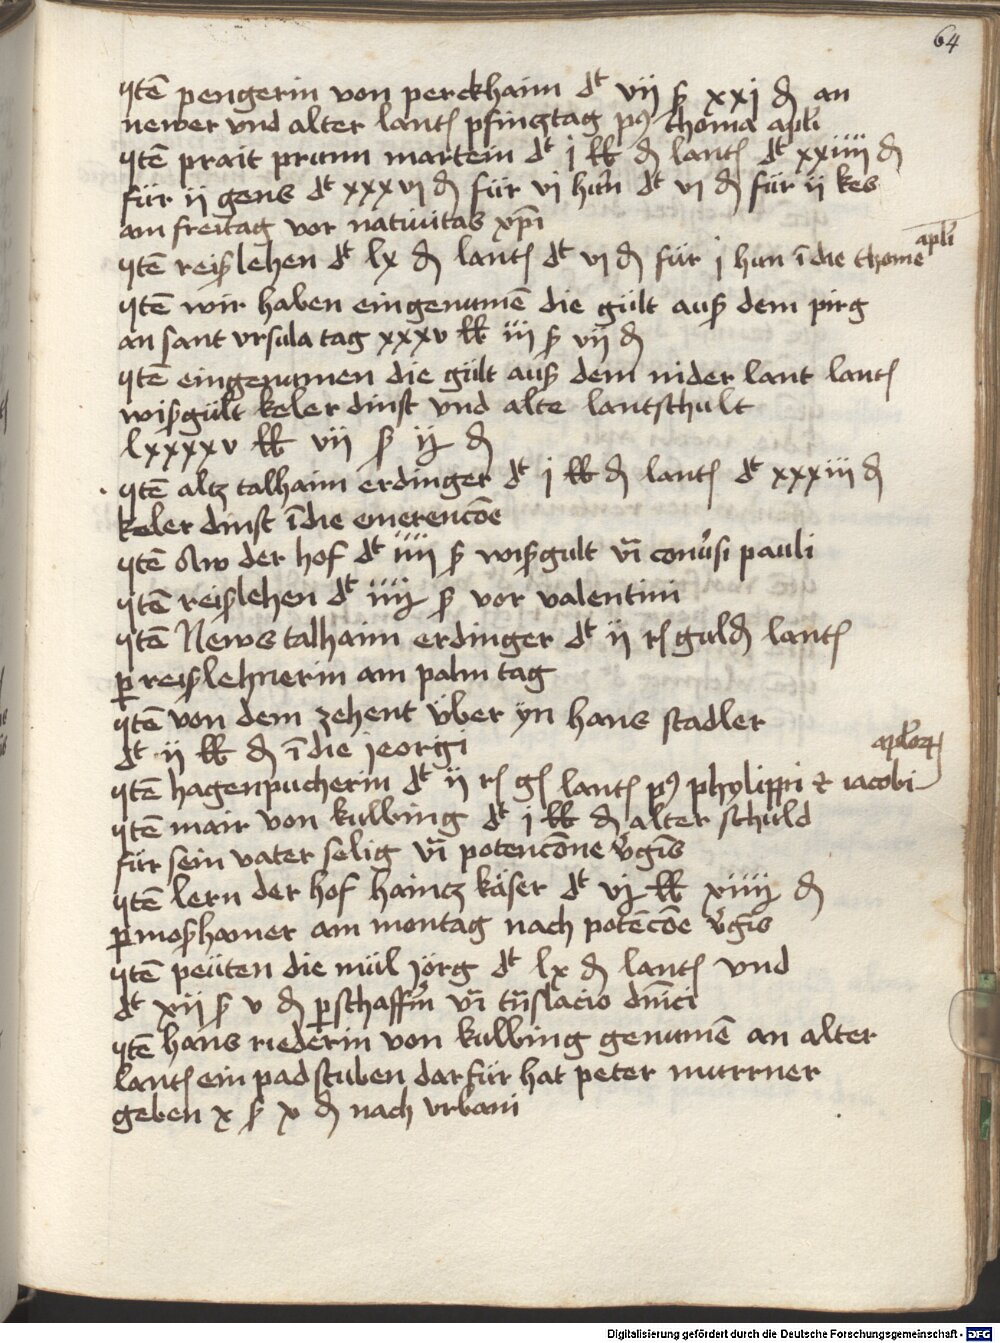 64
Itē pengerin von perckhaim dt vij ß xxj ₰ an
newer vnd alter lantſ pfingtag pꝰ thoma apłi
Itē prait prunn martein dt j ℔ ₰ lantſ dt xxiiij ₰
für ij gens dt xxxvj ₰ für vj hūn dt vj ₰ für ij kes
am freitag vor natiuitas xp̄i
Itē reißlehen dt lx ₰ lantſ dt vj ₰ für j hun ī die thome apłi
Itē wir haben eingenumē die gült auß dem pirg
an sant vrsula tag xxxv ℔ iij ß vij ₰
Itē eingenumen die gült auß dem nider lant lantſ
wißgült keler dinst vnd alte lantschult
lxxxxv ℔ vij ß ij ₰
Itē altz talhaim erdinger dt j ℔ ₰ lantſ dt xxxiij ₰
keler dinst ī die emerencōe
Itē Aw der hof dt iiij ß wißgult vī conu̓si pauli
Itē reißlehen dt iiij ß vor valentini
Itē News talhaim erdinger dt ij rſ guld₰ lantſ
ꝑ reißlehnerin am palm tag
Itē von dem zehent über yn hans stadler
dt ij ℔ ₰ ī die jeorgi
Itē hagenpucherin dt ij rſ gſ lantſ pꝰ phylippi ⁊ iacobi apłoꝝ
Itē mair von kulbing dt j ℔ ₰ alter schuld
für sein vater selig vī potencōne v̓gīs
Itē lern der hof haintz käser dt vj ℔ xiiij ₰
ꝑ moßhamer am montag nach potēcōe v̓gīs
Itē peüten die mül jörg dt lx ₰ lantſ vnd
dt xij ß v ₰ ꝑ schaffn̄ vī trāslacio dn̄ici
Itē hans riederin von kulbing genumē an alter
lantſ ein padstuben darfür hat peter murrner
geben x ß x ₰ nach vrbani
Digitalisierung gefördert durch die Deutsche Forschungsgemeinschaft - DFG